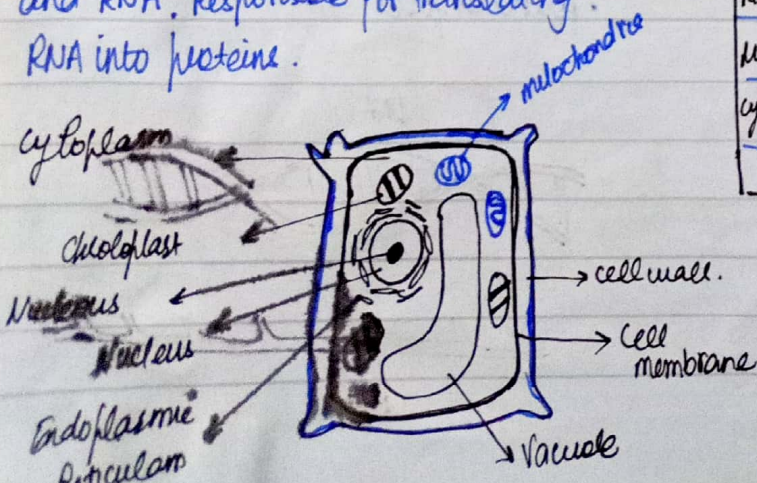 and RNA. Responsible for translating
RNA into proteins.
mitochondria
Cytoplasm
Chloloplast
Nucleus
Nucleus
Endoplasmic
Reticulam
cell wall.
Cell
membrane
Vacuole